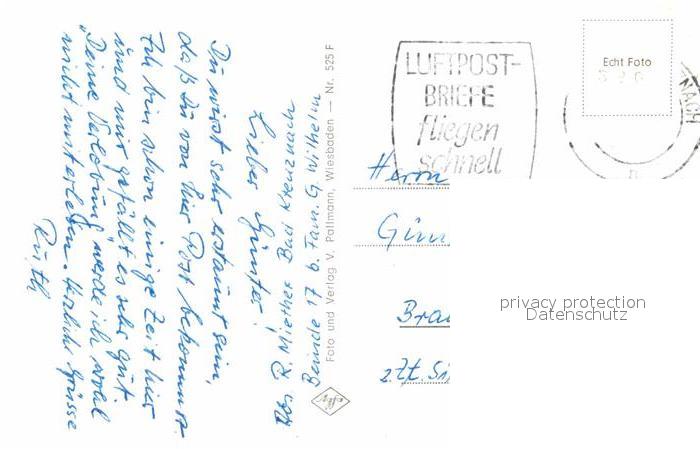 Abs R. Miether Bad Kreuznach
Beinde 17 b. Fam. G. Wilhelm
Lieber Günter!
Du wirst sehr erstaunt sein,
daß Du von hier Post bekommst.
Ich bin schon einige Zeit hier
und mir gefällt es sehr gut.
"Deine Verlobung" werde ich wohl
nicht miterleben. Herzliche Grüsse
Ruth
Foto und Verlag V. Pallmann, Wiesbaden — Nr. 525 F
Agfa
LUFTPOST-
BRIEFE
fliegen
schnell
Echt Foto
NACH
Herrn
Gün
Brau
z.Zt. Si
privacy protection
Datenschutz